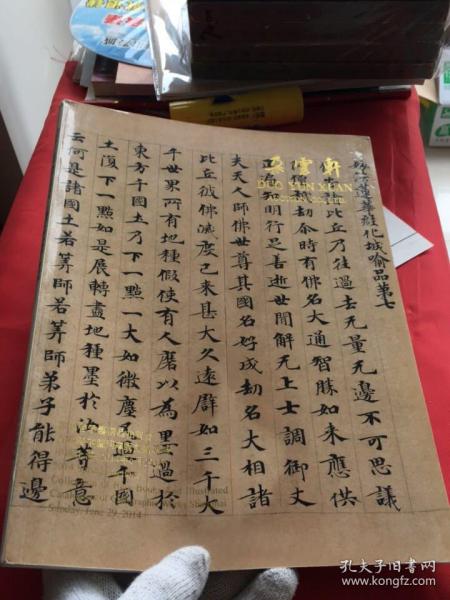 妙法蓮華經化城喻品第七
佛告諸比丘乃往過去无量无邊不可思議
僧祇劫尒時有佛名大通智勝如來應供
正遍知明行足善逝世間解无上士調御丈
夫天人師佛世尊其國名好成劫名大相諸
比丘彼佛滅度已來甚大久遠譬如三千大
千世界所有地種假使有人磨以為墨過於
東方千國土乃下一點大如微塵又過千國
土復下一點如是展轉盡地種墨於汝等意
云何是諸國土若筭師若筭師弟子能得邊
朵雲軒
DUO YUN XUAN
Sunday, June 29, 2014
孔夫子旧书网
www.kongfz.com